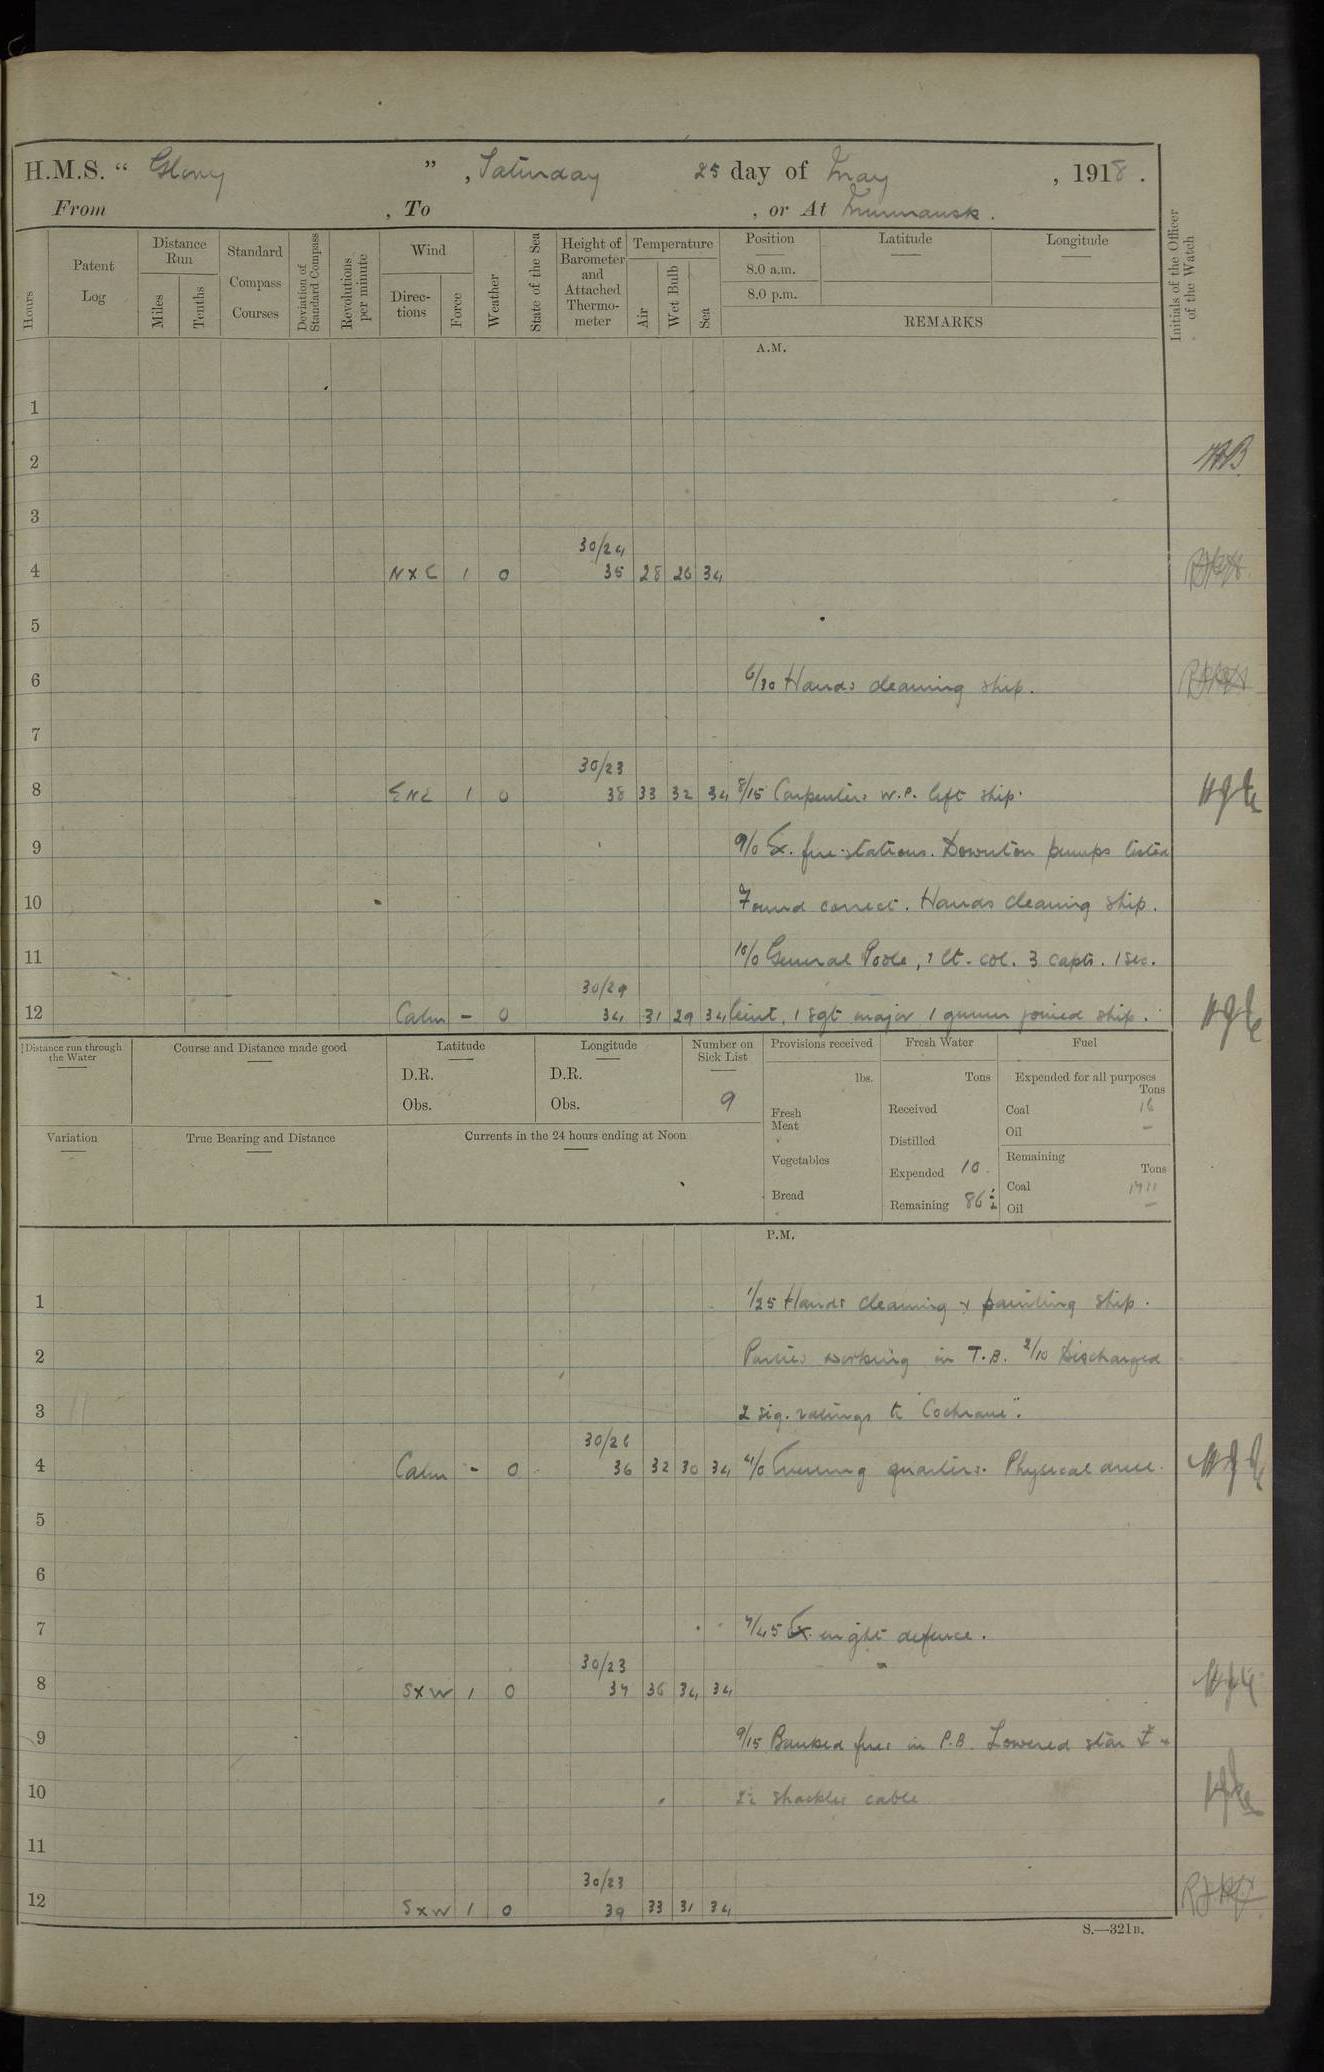 H.M.S. “ Glory ”, Saturday 25 day of May, 1918.
From , To , or At Murmansk.
Hours
Patent Log
Distance Run
Miles
Tenths
Standard Compass Courses
Deviation of Standard Compass
Revolutions per minute
Wind
Directions
Force
Weather
State of the Sea
Height of Barometer and Attached Thermometer
Temperature
Air
Wet Bulb
Sea
Position
8.0 a.m.
8.0 p.m.
Latitude
Longitude
REMARKS
Initials of the Officer of the Watch
A.M.
1
2
3
30/24
4 NxE 1 o 35 28 26 34
5
6 6/30 Hands cleaning ship.
7
30/23
8 ENE 1 o 38 33 32 34 8/15 Carpenters W.P. left ship.
9 9/0 Ex. fire-stations. Downton pumps tested
10 Found correct. Hands cleaning ship.
11 10/0 General Poole, 1 Lt-Col. 3 capts. 1 sec.
30/29
12 Calm - o 34 31 29 34 lieut, 1 sgt major 1 gunner joined ship.
Distance run through the Water
Course and Distance made good
Latitude
D.R.
Obs.
Longitude
D.R.
Obs.
Number on Sick List
9
Provisions received
lbs.
Fresh Meat
Vegetables
Bread
Fresh Water
Tons
Received
Distilled
Expended 10.
Remaining 86
Fuel
Expended for all purposes
Tons
Coal 16
Oil -
Remaining
Tons
Coal 1711
Oil -
Variation
True Bearing and Distance
Currents in the 24 hours ending at Noon
P.M.
1 1/25 Hands cleaning & painting ship.
2 Parties working in T.B. 2/10 Discharged
3 2 sig. ratings to "Cochrane".
30/26
4 Calm - o 36 32 30 34 4/0 Evening quarters. Physical
5
6
7 7/45 Ex. night defence.
30/23
8 SxW 1 o 37 36 34 34
9 9/15 Banked fires in P.B. Lowered star
10 2½ shackles cable
11
30/23
12 SxW 1 o 39 33 31 34
S.—321B.